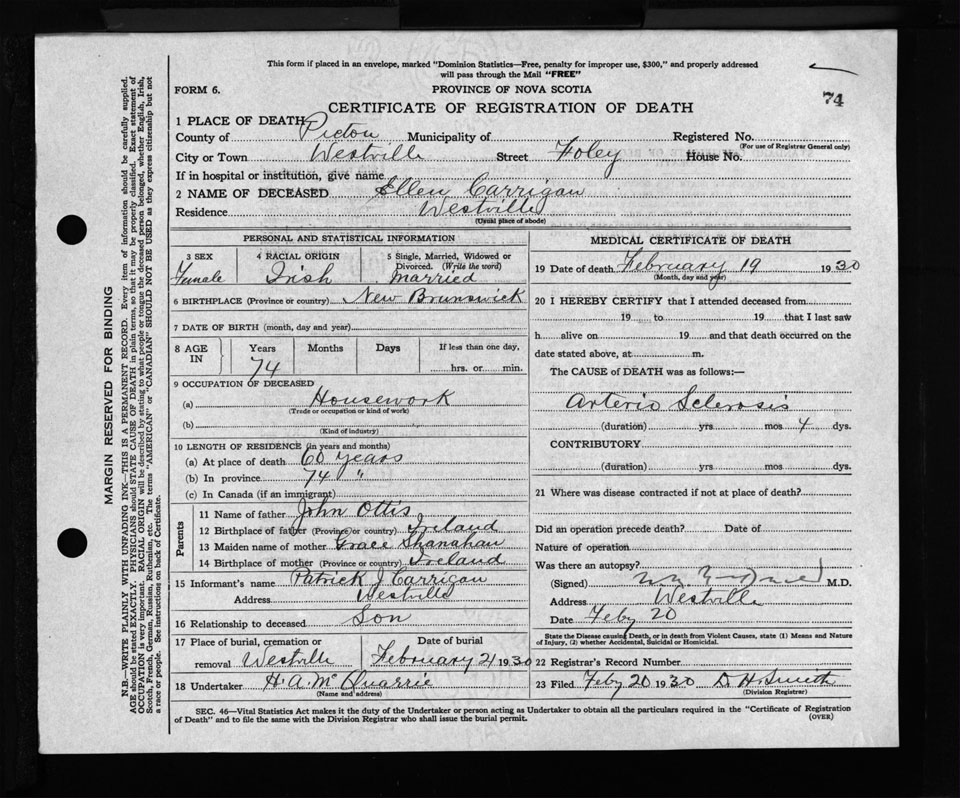 This form if placed in an envelope, marked "Dominion Statistics—Free, penalty for improper use, $300," and properly addressed
will pass through the Mail "FREE"
FORM 6.
PROVINCE OF NOVA SCOTIA
CERTIFICATE OF REGISTRATION OF DEATH
74
1 PLACE OF DEATH
County of Pictou Municipality of Registered No.
(For use of Registrar General only)
City or Town Westville Street Foley House No.
If in hospital or institution, give name
2 NAME OF DECEASED Ellen Carrigan
Residence Westville
(Usual place of abode)
PERSONAL AND STATISTICAL INFORMATION
3 SEX 4 RACIAL ORIGIN 5 Single, Married, Widowed or
Divorced. (Write the word)
Female Irish Married
6 BIRTHPLACE (Province or country) New Brunswick
7 DATE OF BIRTH (month, day and year)
8 AGE IN Years Months Days If less than one day,
74 hrs. or min.
9 OCCUPATION OF DECEASED
(a) Housework
(Trade or occupation or kind of work)
(b)
(Kind of industry)
10 LENGTH OF RESIDENCE (in years and months)
(a) At place of death 60 years
(b) In province 74 "
(c) In Canada (if an immigrant)
Parents
11 Name of father John Ottis
12 Birthplace of father (Province or country) Ireland
13 Maiden name of mother Grace Shanahan
14 Birthplace of mother (Province or country) Ireland
15 Informant's name Patrick J Carrigan
Address Westville
16 Relationship to deceased Son
17 Place of burial, cremation or Date of burial
removal Westville February 21 1930
18 Undertaker H. A. McQuarrie
(Name and address)
MEDICAL CERTIFICATE OF DEATH
19 Date of death February 19 1930
(Month, day and year)
20 I HEREBY CERTIFY that I attended deceased from
19 to 19 that I last saw
h alive on 19 and that death occurred on the
date stated above, at m.
The CAUSE of DEATH was as follows:—
Arterio Sclerosis
(duration) yrs mos 4 dys.
CONTRIBUTORY
(duration) yrs mos dys.
21 Where was disease contracted if not at place of death?
Did an operation precede death? Date of
Nature of operation
Was there an autopsy?
(Signed) M.D.
Address Westville
Date Feby 20
State the Disease causing Death, or in death from Violent Causes, state (1) Means and Nature
of Injury, (2) whether Accidental, Suicidal or Homicidal.
22 Registrar's Record Number
23 Filed Feby 20 1930 D. H. Smith
(Division Registrar)
SEC. 46—Vital Statistics Act makes it the duty of the Undertaker or person acting as Undertaker to obtain all the particulars required in the "Certificate of Registration
of Death" and to file the same with the Division Registrar who shall issue the burial permit.
(OVER)
MARGIN RESERVED FOR BINDING
N.B.—WRITE PLAINLY WITH UNFADING INK—THIS IS A PERMANENT RECORD. Every item of information should be carefully supplied.
AGE should be stated EXACTLY. PHYSICIANS should STATE CAUSE OF DEATH in plain terms, so that it may be properly classified. Exact statement of
OCCUPATION is very important. RACIAL ORIGIN will be described by stating to what people or tongue the deceased person belonged, whether English, Irish,
Scotch, French, German, Russian, Ruthenian, etc. The terms "AMERICAN" or "CANADIAN" SHOULD NOT BE USED as they express citizenship but not
a race or people. See instructions on back of Certificate.